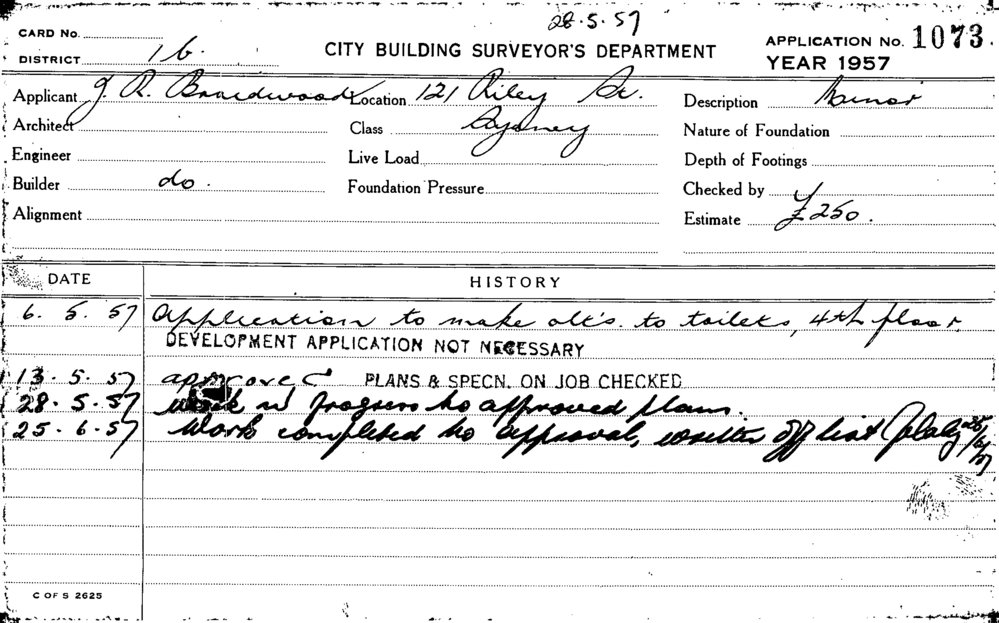 28.5.57
CARD No.
DISTRICT 16.
CITY BUILDING SURVEYOR'S DEPARTMENT
APPLICATION No. 1073.
YEAR 1957
Applicant J. R. Braidwood Location 121 Riley St. Description Minor
Architect Class Sydney Nature of Foundation
Engineer Live Load Depth of Footings
Builder do. Foundation Pressure Checked by
Alignment Estimate £250.
DATE HISTORY
6. 5. 57 Application to make alt's. to toilets, 4th floor.
DEVELOPMENT APPLICATION NOT NECESSARY
13. 5. 57 approved PLANS & SPECN. ON JOB CHECKED
28. 5. 57 work in progress to approved plans.
25. 6. 57 Work completed to approval, written off list
C OF S 2625